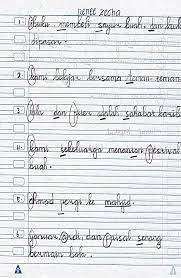 renee zocha
1. Ibuku membeli sayur, buah, dan lauk
dipasar.
2. kami belajar bersama teman-teman
3. lala dan adalah sahabat karib
4. kami sekeluarga menonton festival
buah.
5. ahmad pergi ke masjid.
6. januar, andi, dan faisal senang
bermain bola.